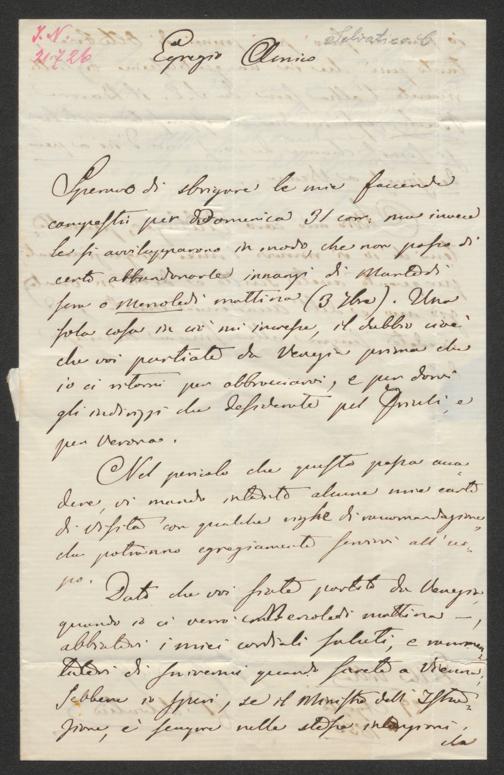 I.N.
21.726
Selvatico
Egregio Amico
Speravo di sbrigare le mie faccende
campestri per Domenica 31 corr. ma invece
le si avvilupparono in modo, che non posso di
certo abbandonarle innanzi di Martedi
sera o Mercoledi mattina (3 7bre). Una
sola cosa in ciò mi incresce, il dubbio cioè
che voi partiate da Venezia prima che
io ci ritorni per abbracciarvi, e per darvi
gli indirizzi che desiderate pel Friuli, e
per Verona.
Nel pericolo che questo possa acca-
dere, vi mando intanto alcune mie carte
di visita con qualche righe di raccomandazione
che potranno egregiamente servirvi all'uo-
po.
Dato che voi siate partito da Venezia,
quando io ci verrò Mercoledi mattina,
abbiatevi i miei cordiali saluti, e rammen-
tatevi di scrivermi quando sarete a Vienna,
Sebbene io speri, se il Ministro dell'Istru-
zione, è sempre nelle stesse intenzioni,
da